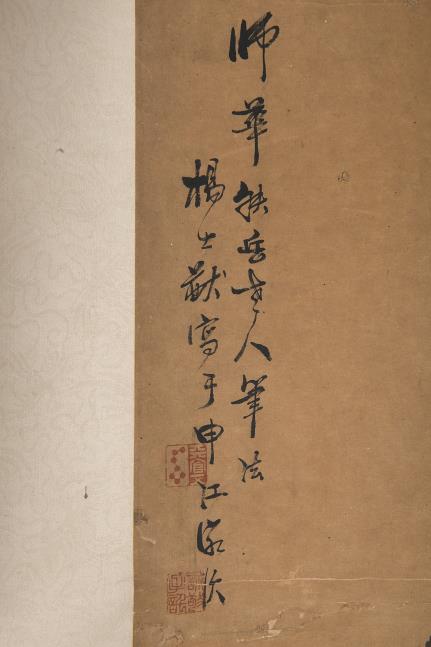 師華鉄岳老人筆法
楊士猷寫于申江客次